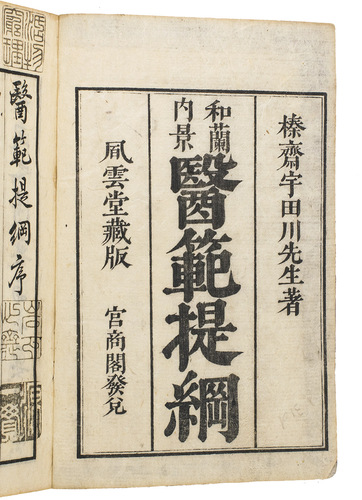 榛齋宇田川先生著
和蘭
内景
醫範提綱
風雲堂藏版
官商閣發兌
醫範提綱序